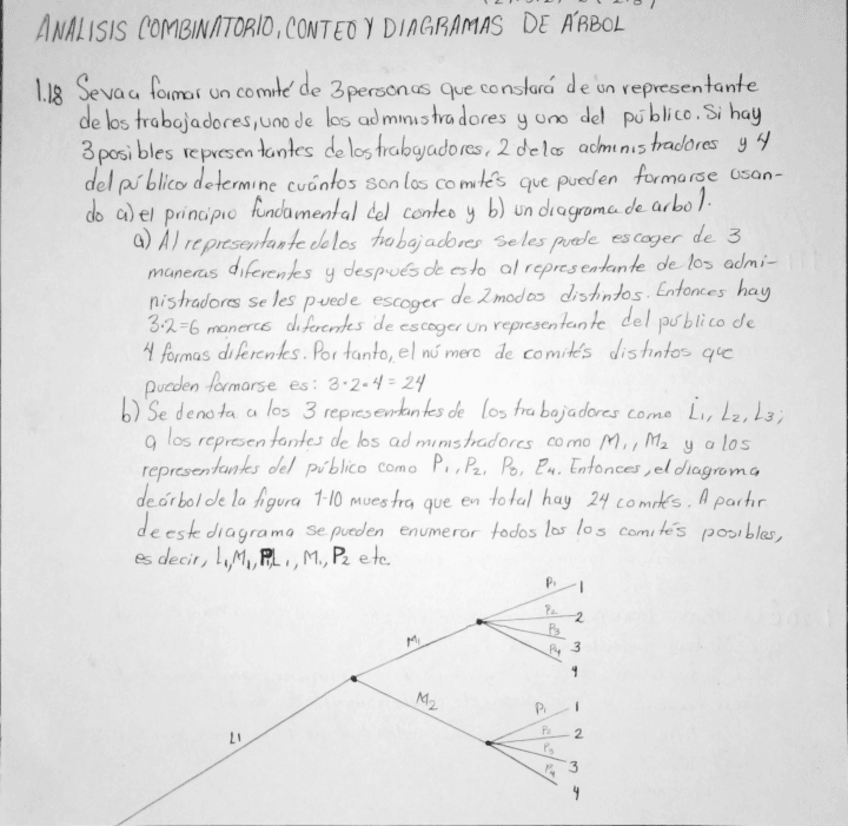 ANALISIS COMBINATORIO, CONTEO Y DIAGRAMAS DE ÁRBOL
1.18 Se va a formar un comité de 3 personas que constará de un representante
de los trabajadores, uno de los administradores y uno del público. Si hay
3 posibles representantes de los trabajadores, 2 de los administradores y 4
del público determine cuántos son los comités que pueden formarse usan-
do a) el principio fundamental del conteo y b) un diagrama de arbol.
a) Al representante de los trabajadores se les puede escoger de 3
maneras diferentes y después de esto al representante de los admi-
nistradores se les puede escoger de 2 modos distintos. Entonces hay
3·2=6 maneras diferentes de escoger un representante del público de
4 formas diferentes. Por tanto, el número de comités distintos que
pueden formarse es: 3·2·4=24
b) Se denota a los 3 representantes de los trabajadores como L1, L2, L3;
a los representantes de los administradores como M1, M2 y a los
representantes del público como P1, P2, P3, P4. Entonces, el diagrama
de árbol de la figura 1-10 muestra que en total hay 24 comités. A partir
de este diagrama se pueden enumerar todos los los comités posibles,
es decir, L1, M1, P1, L1, M1, P2 etc.
P1 1
P2 2
P3 3
P4 4
M1
M2
P1 1
P2 2
P3 3
P4 4
L1